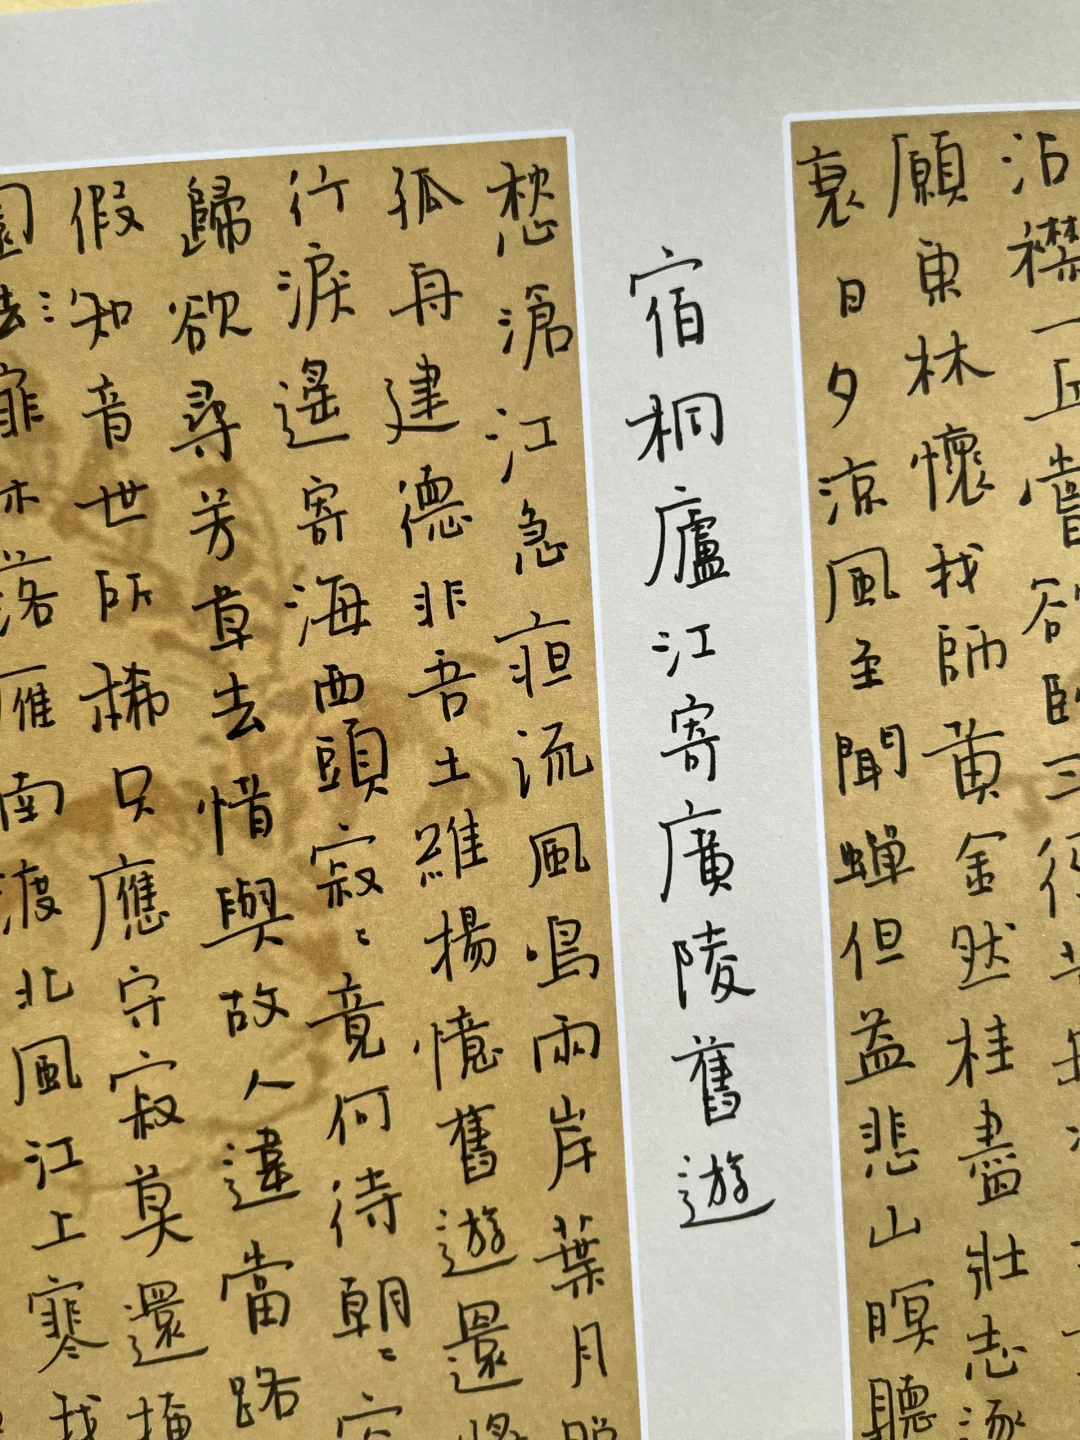 沾襟一丘嘗欲臥三徑苦無
願東林懷我師黃金然桂盡壯志逐
衰日夕涼風至聞蟬但益悲山暝聽
宿桐廬江寄廣陵舊遊
愁滄江急亱流風鳴兩岸葉月照
孤舟建德非吾土維揚憶舊遊還將
行淚遙寄海西頭寂〻竟何待朝〻空
歸欲尋芳草去惜與故人違當路
假知音世所稀只應守寂莫還掩
園去扉木落雁南渡北風江上寒我